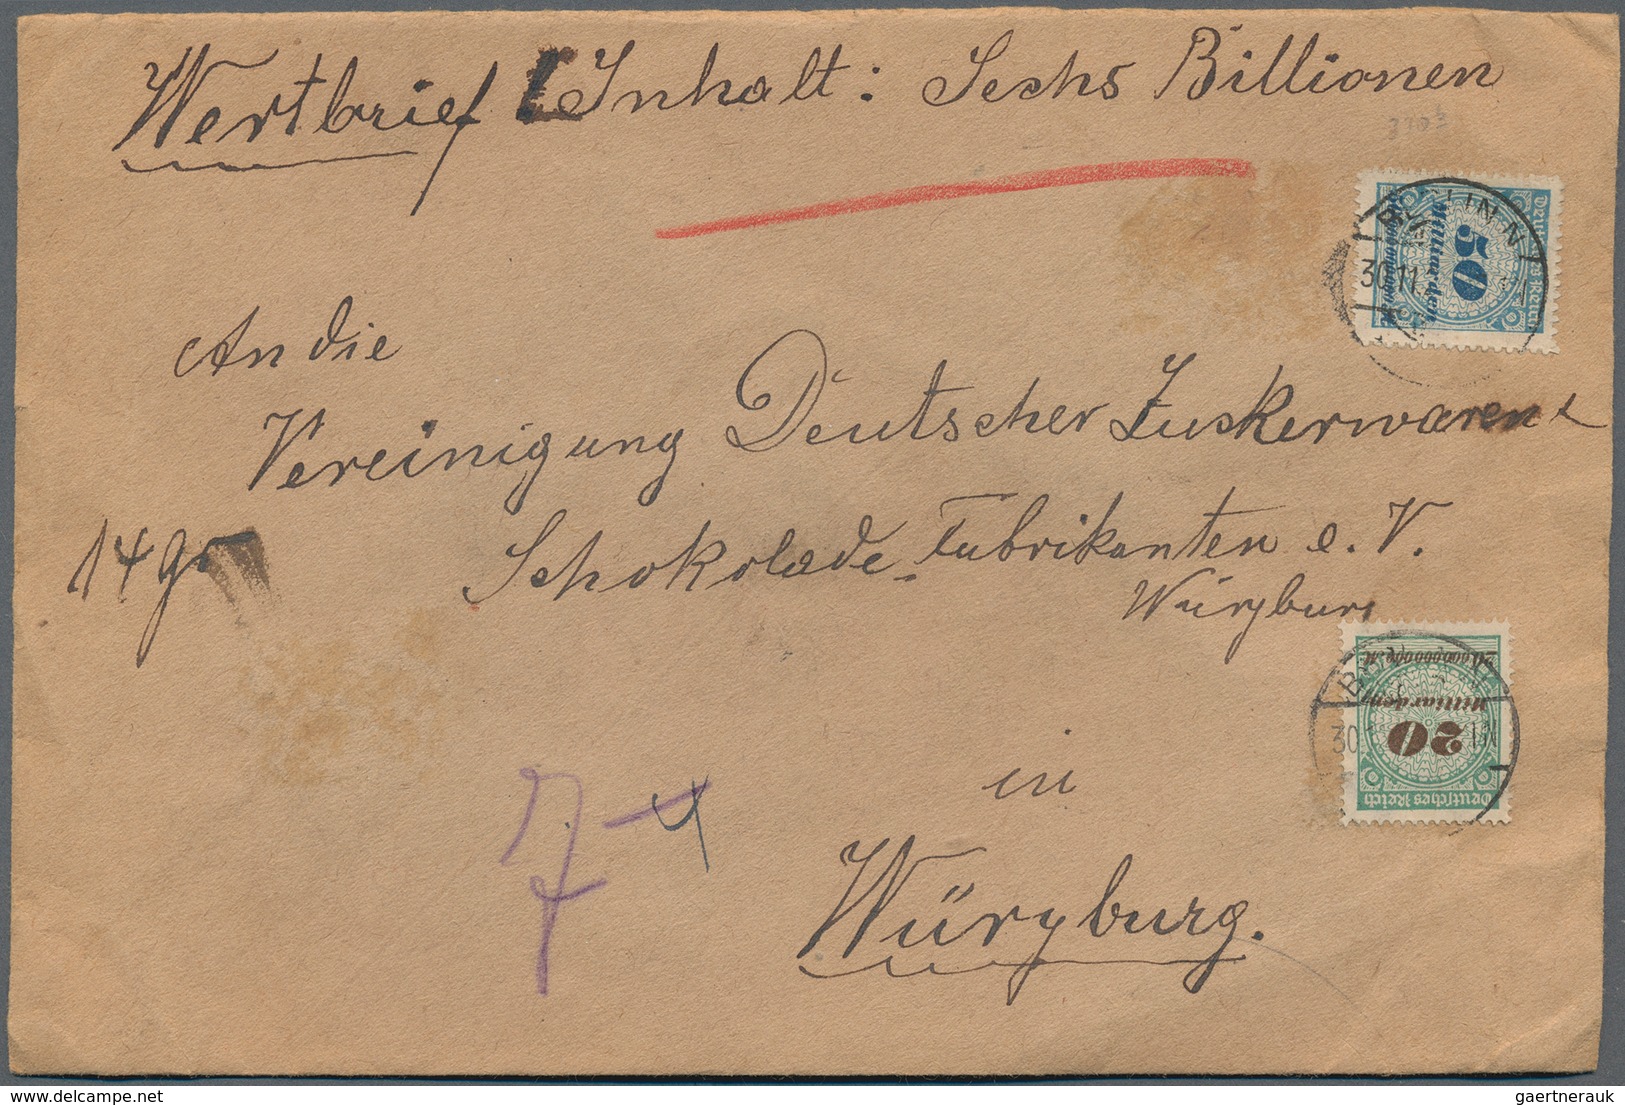 Wertbrief Inhalt: Sechs Billionen
3303
50
Milliarden
Deutsches Reich
BERLIN N
30.11.
An die
Vereinigung Deutscher Zuckerwaren &
Schokolade-Fabrikanten e. V.
Würzburg
14 gr
20
Milliarden
Deutsches Reich
30
7
4
in
Würzburg.
www.delcampe.net
gaertnerauk